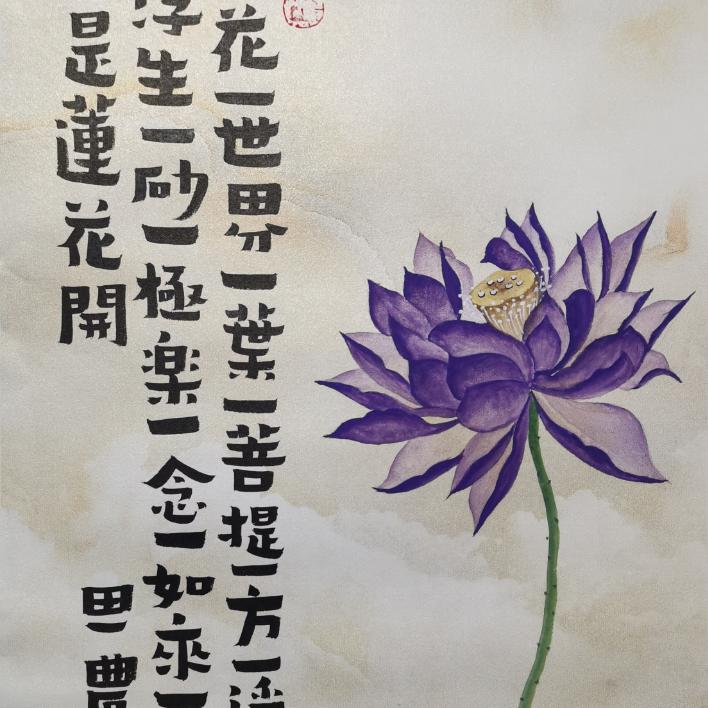 花一世界一葉一菩提一方一
浮生一砂一極楽一念一如來一
是蓮花開
田一農